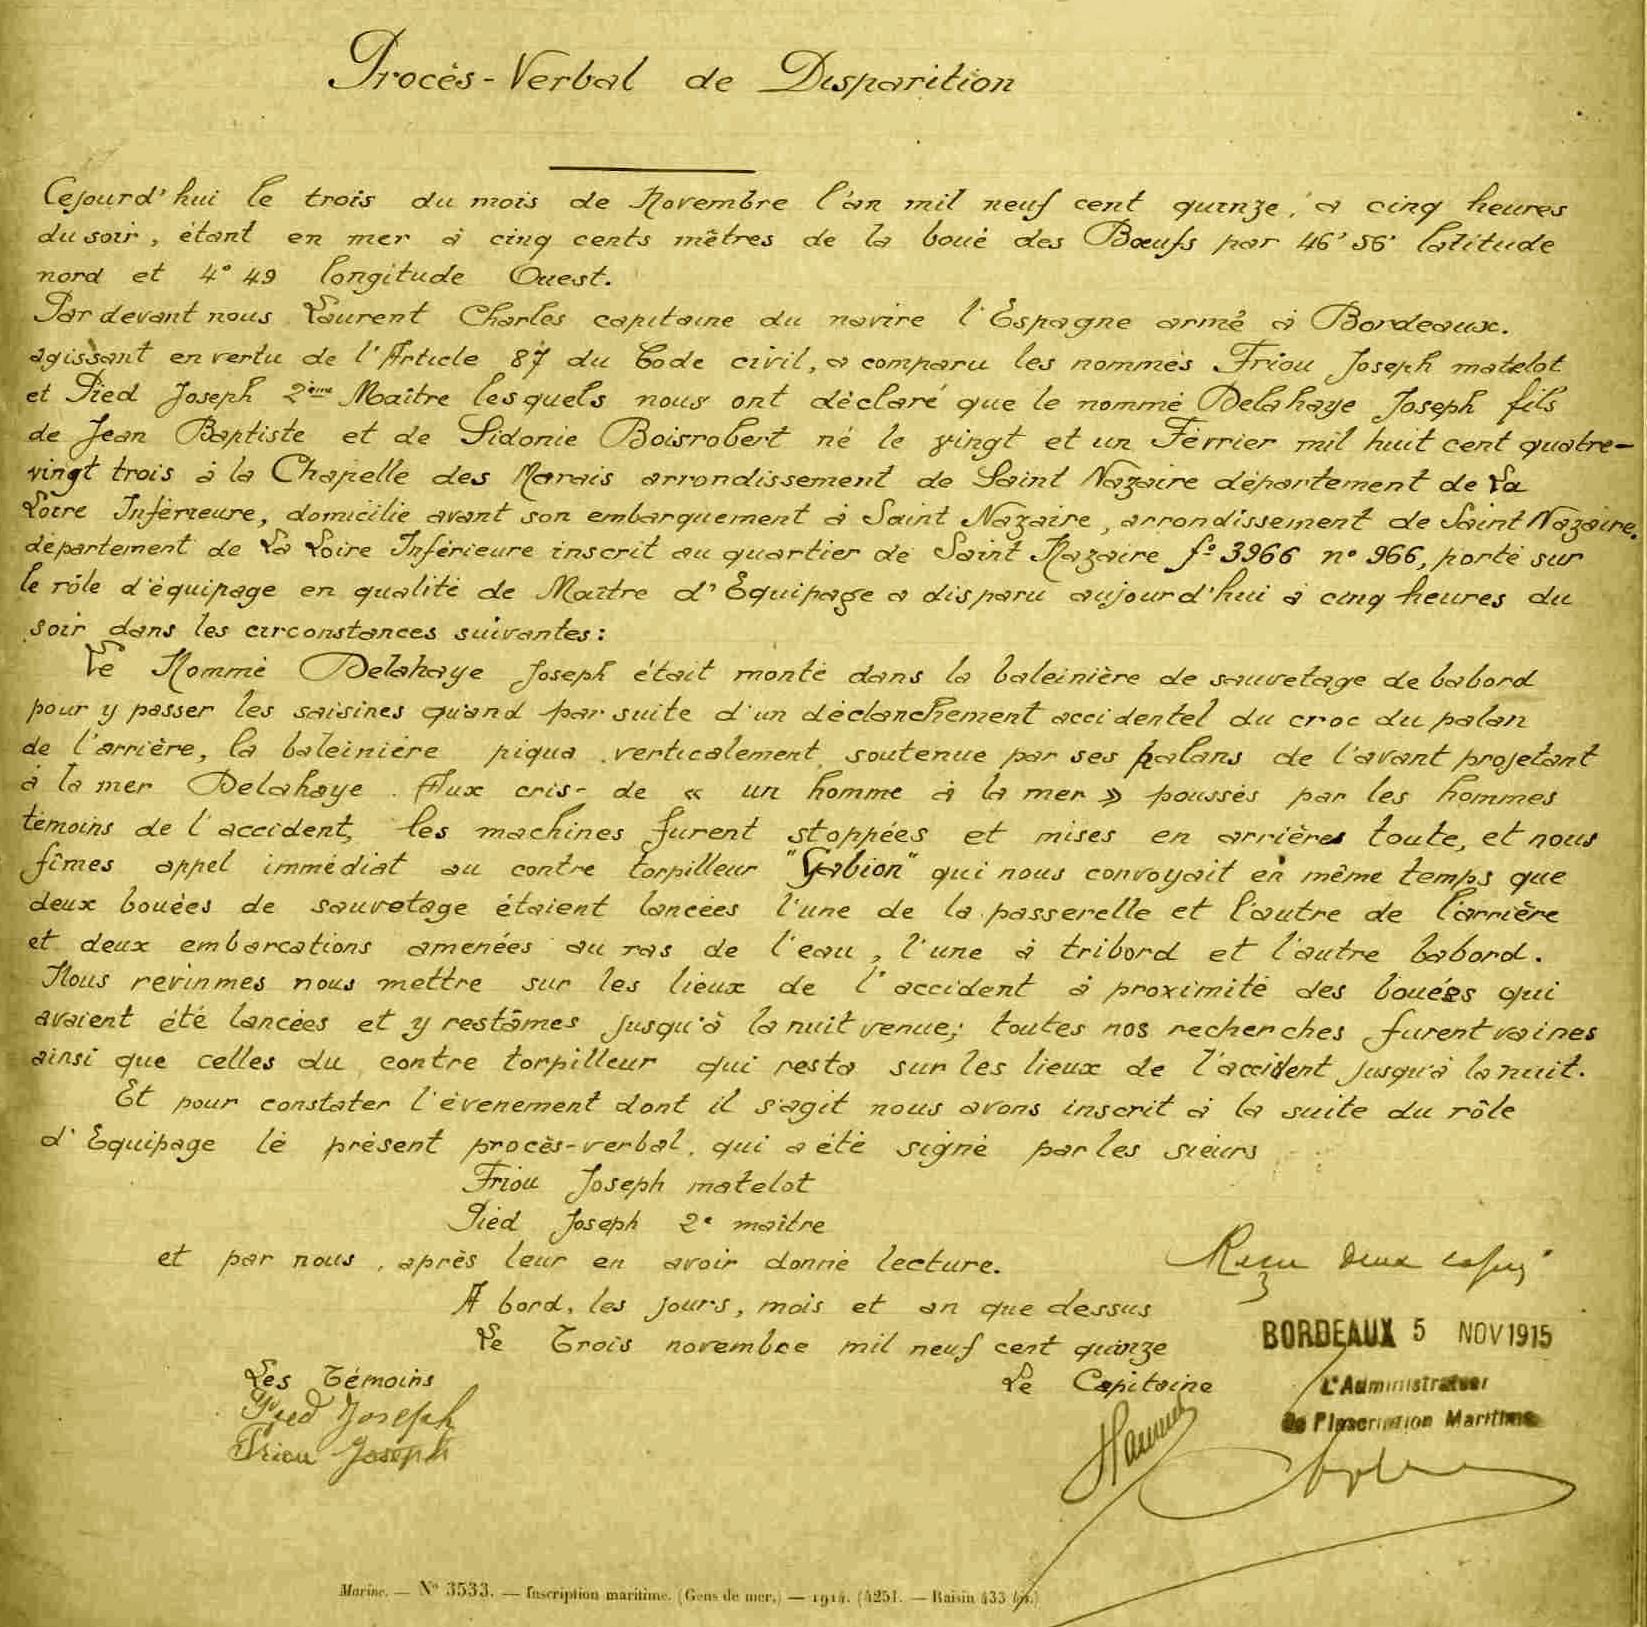 Procès-Verbal de Disparition
Cejourd'hui le trois du mois de Novembre l'an mil neuf cent quinze, à cinq heures
du soir, étant en mer à cinq cents mètres de la boué des Bœufs par 46° 56' latitude
nord et 4° 49 longitude Ouest.
Par devant nous Laurent Charles capitaine du navire l'Espagne armé à Bordeaux.
agissant en vertu de l'Article 87 du Code civil, a comparu les nommés Friou Joseph matelot
et Pied Joseph 2ème Maître lesquels nous ont déclaré que le nommé Delahaye Joseph fils
de Jean Baptiste et de Sidonie Boisrobert né le vingt et un Fevrier mil huit cent quatre-
vingt trois à la Chapelle des Marais arrondissement de Saint Nazaire département de La
Loire Inférieure, domicilié avant son embarquement à Saint Nazaire, arrondissement de Saint Nazaire,
département de La Loire Inférieure inscrit au quartier de Saint Nazaire fo 3966 no 966, porté sur
le rôle d'équipage en qualité de Maître d'Equipage a disparu aujourd'hui à cinq heures du
soir dans les circonstances suivantes:
Le Nommé Delahaye Joseph était monté dans la baleinière de sauvetage de babord
pour y passer les saisines quand par suite d'un déclanchement accidentel du croc du palan
de l'arrière, la baleinière piqua verticalement soutenue par ses palans de l'avant projetant
à la mer Delahaye. Aux cris- de « un homme à la mer » poussés par les hommes
témoins de l'accident, les machines furent stoppées et mises en arrières toute, et nous
fîmes appel immédiat au contre torpilleur "Gabion" qui nous convoyait en même temps que
deux bouées de sauvetage étaient lancées l'une de la passerelle et l'autre de l'arrière
et deux embarcations amenées au ras de l'eau, l'une à tribord et l'autre babord.
Nous revinmes nous mettre sur les lieux de l'accident à proximité des bouées qui
avaient été lancées et y restâmes jusqu'à la nuit venue; toutes nos recherches furent vaines
ainsi que celles du contre torpilleur qui resta sur les lieux de l'accident jusqu'à la nuit.
Et pour constater l'évenement dont il s'agit nous avons inscrit à la suite du rôle
d'Equipage le présent procès-verbal, qui a été signé par les sieurs
Friou Joseph matelot
Pied Joseph 2e maître
et par nous, après leur en avoir donné lecture.
Reçu deux copies
A bord, les jours, mois et an que dessus
Le Trois novembre mil neuf cent quinze
BORDEAUX 5 NOV 1915
Les Témoins
Le Capitaine
L'Administrateur
de l'Inscription Maritime
Pied Joseph
Friou Joseph
Marine. — No 3533. — Inscription maritime. (Gens de mer.) — 1914. (4251. — Raisin 433 bis.)